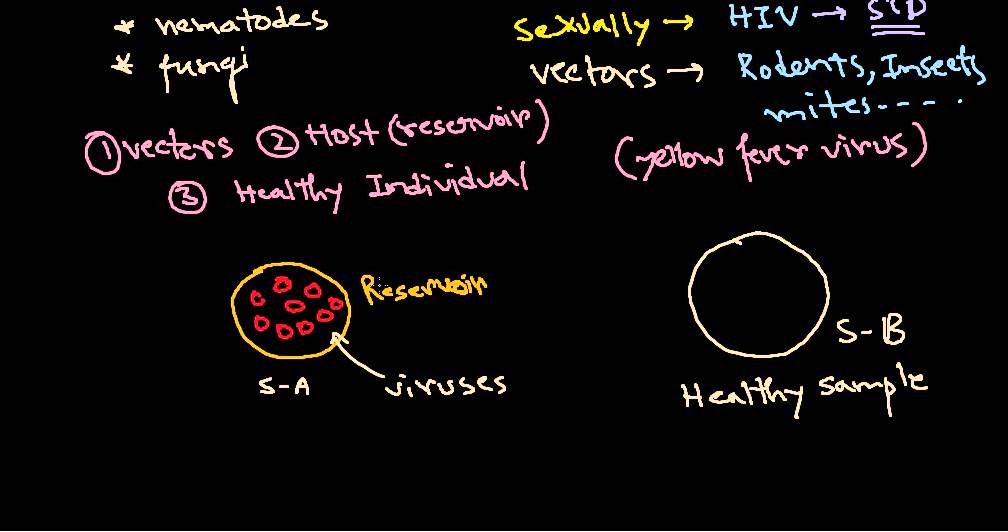 * nematodes
* fungi
sexually → HIV → STD
vectors → Rodents, Insects
mites-----.
① vectors ② Host (reservoir)
③ Healthy Individual
(yellow fever virus)
Reservoir
S-A
viruses
S-B
Healthy sample